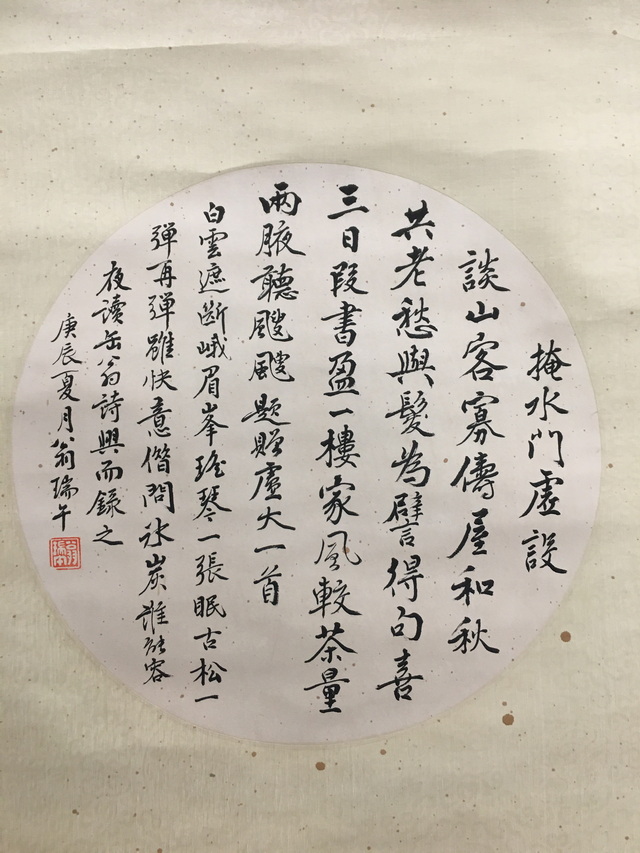 掩水門虛設
談山客寡儔屋和秋
共老愁與髮為讐得句喜
三日段書盈一樓家風較茶量
兩腋聽颼颼題贈虛大一首
白雲遮斷峨眉峯瑤琴一張眠古松一
彈再彈雖快意借問冰炭誰能容
夜讀缶翁詩興而錄之
庚辰夏月翁瑞午